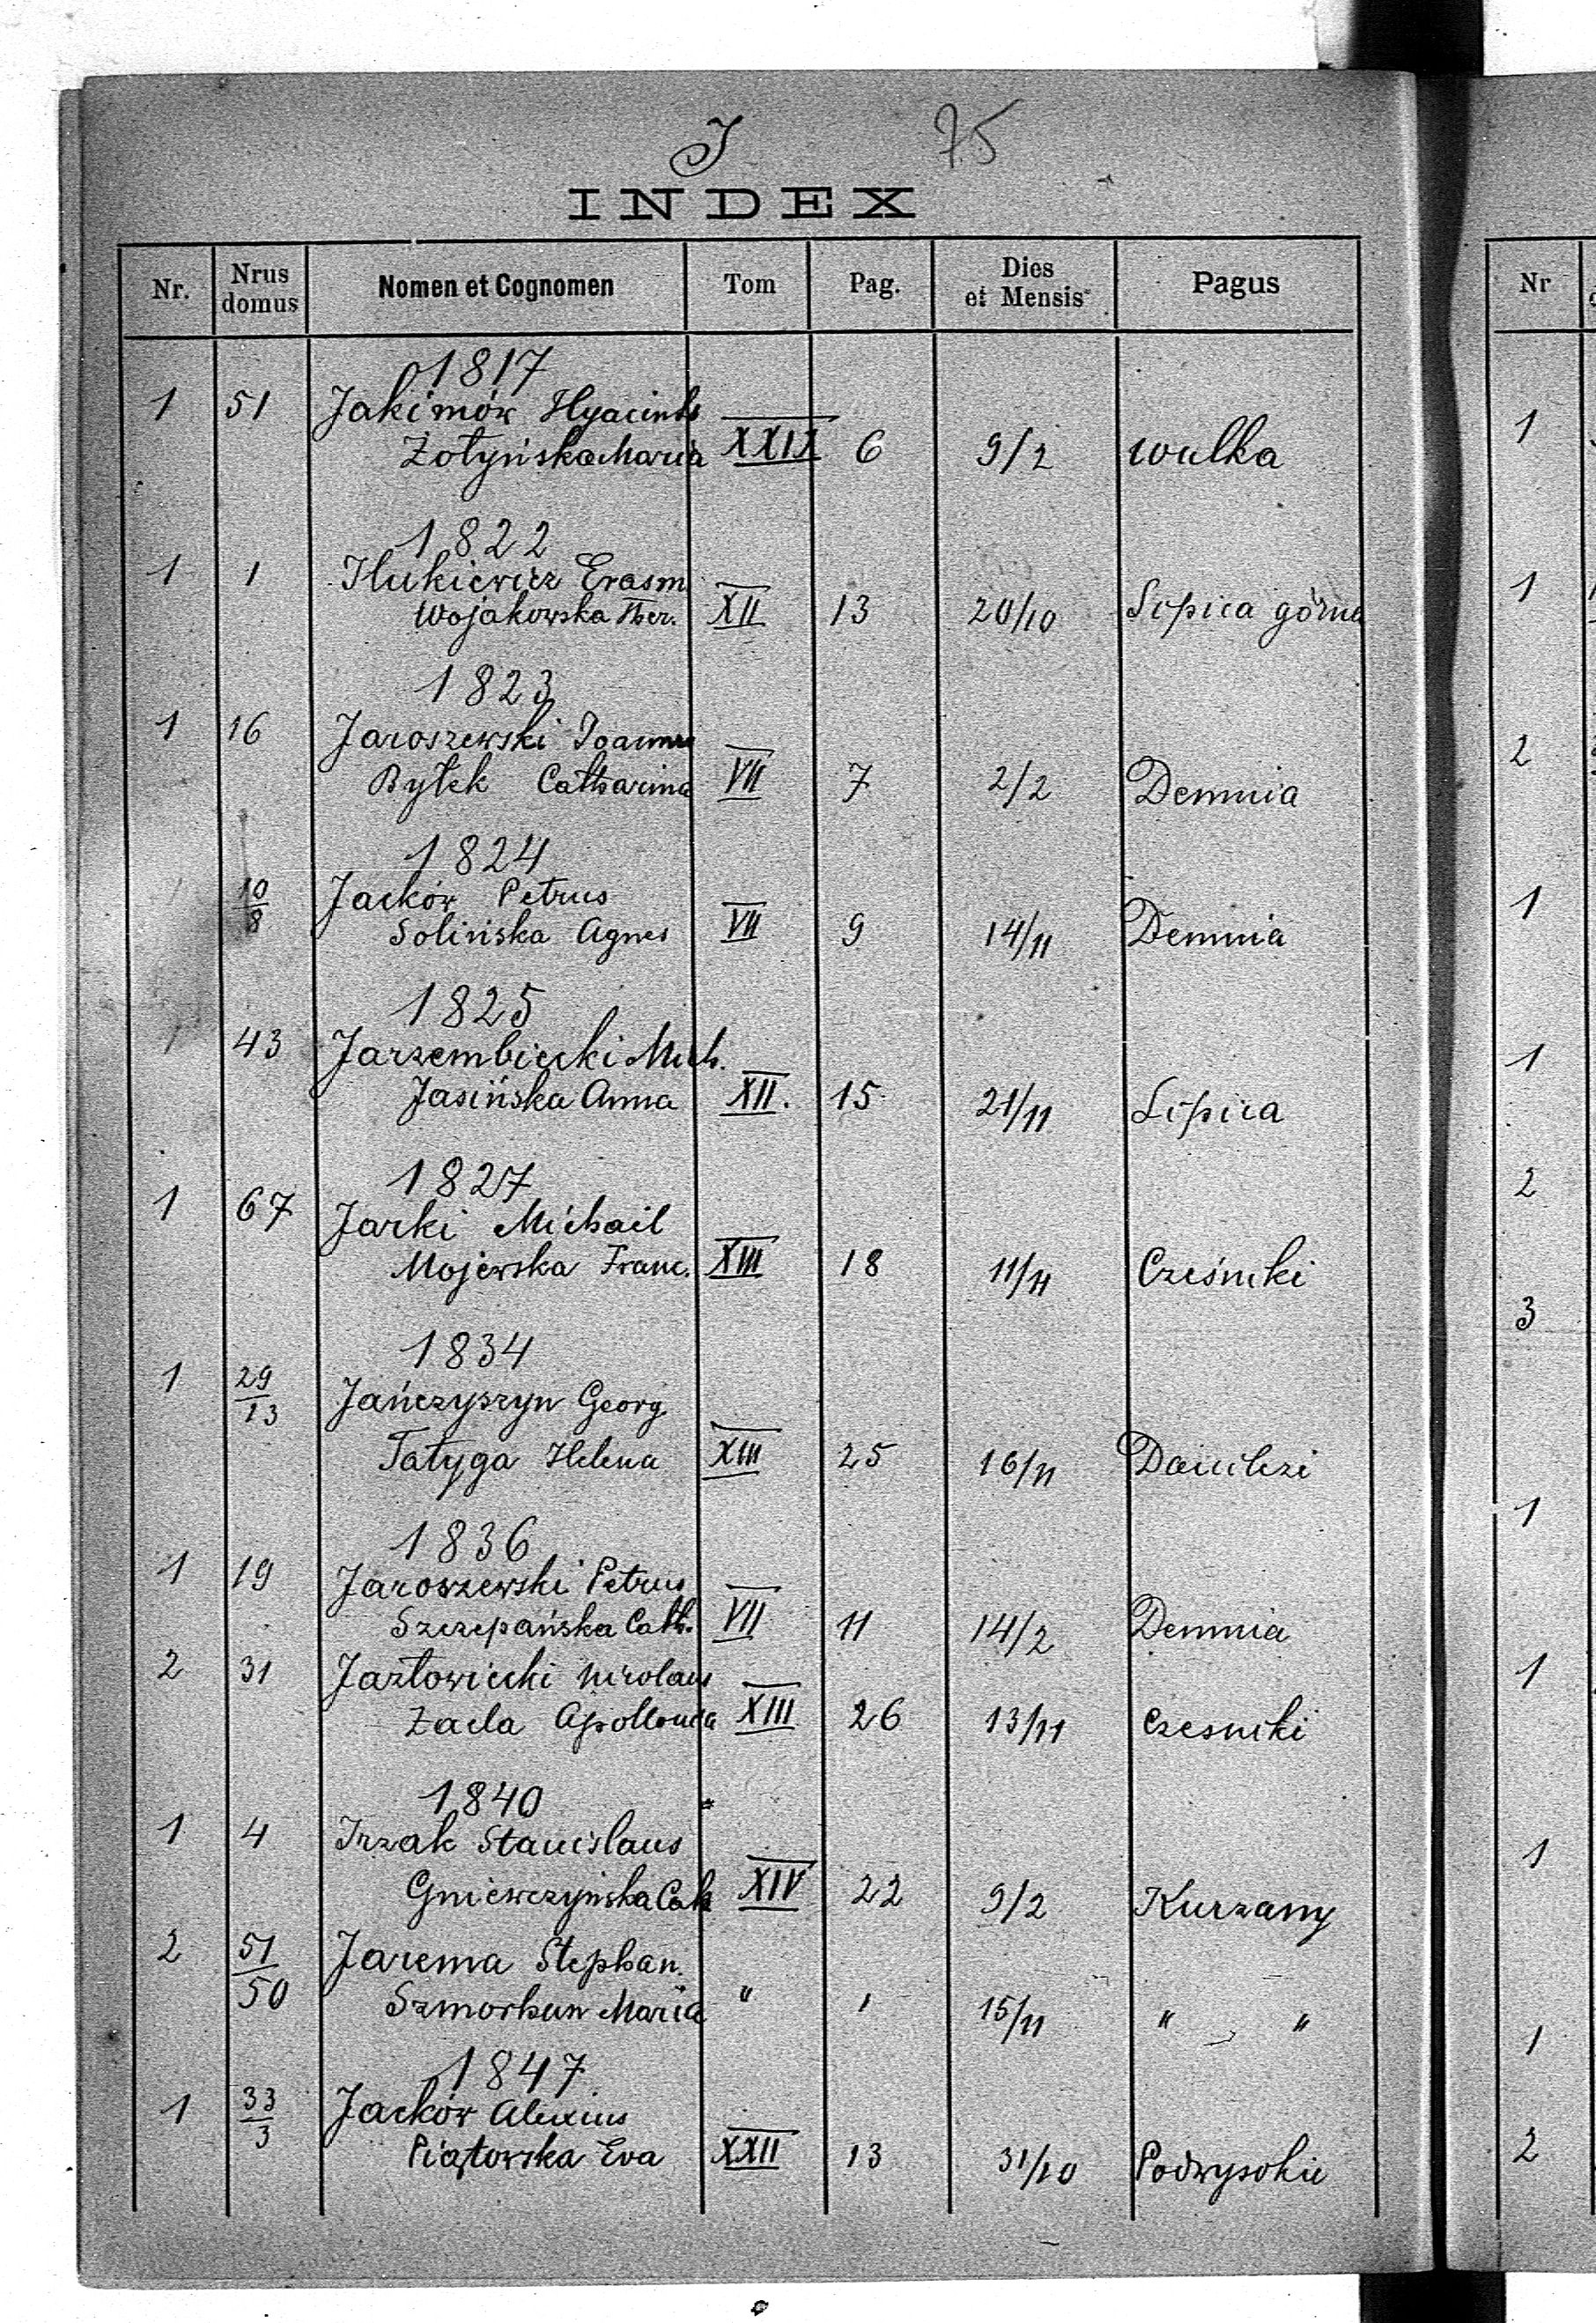 J 75
INDEX
Nr. Nrus domus Nomen et Cognomen Tom Pag. Dies et Mensis Pagus
1817
1 51 Jakimów Hyacinth
Żołyńska Maria XXIX 6 9/2 Wulka
1822
1 1 Ilukiewicz Erasm
Wojakowska Ther. XII 13 20/10 Lipica górna
1823
1 16 Jaroszewski Joannes
Byłek Catharina VII 7 2/2 Demnia
1824
1 10/8 Jacków Petrus
Solińska Agnes VII 9 14/11 Demnia
1825
1 43 Jarzembiecki Mich.
Jasińska Anna XII. 15 21/11 Lipica
1827
1 67 Jarki Michail
Mojewska Franc. XIII 18 11/11 Cześniki
1834
1 29/13 Jańczyszyn Georg.
Tatyga Helena XIII 25 16/11 Danilcze
1836
1 19 Jaroszewski Petrus
Szczepańska Cath. VII 11 14/2 Demnia
2 31 Jazłowiecki Nicolaus
Zacla Apollonia XIII 26 13/11 Czesniki
1840
1 4 Irzak Stanislaus
Gniewczyńska Cath XIV 22 9/2 Kurzany
2 51/50 Jarema Stephan.
Szmorhun Maria " 1 15/11 " "
1847
1 33/3 Jacków Alexius
Piątowska Eva XXII 13 31/10 Podwysokie
Nr
1
1
2
1
1
2
3
1
1
1
1
2